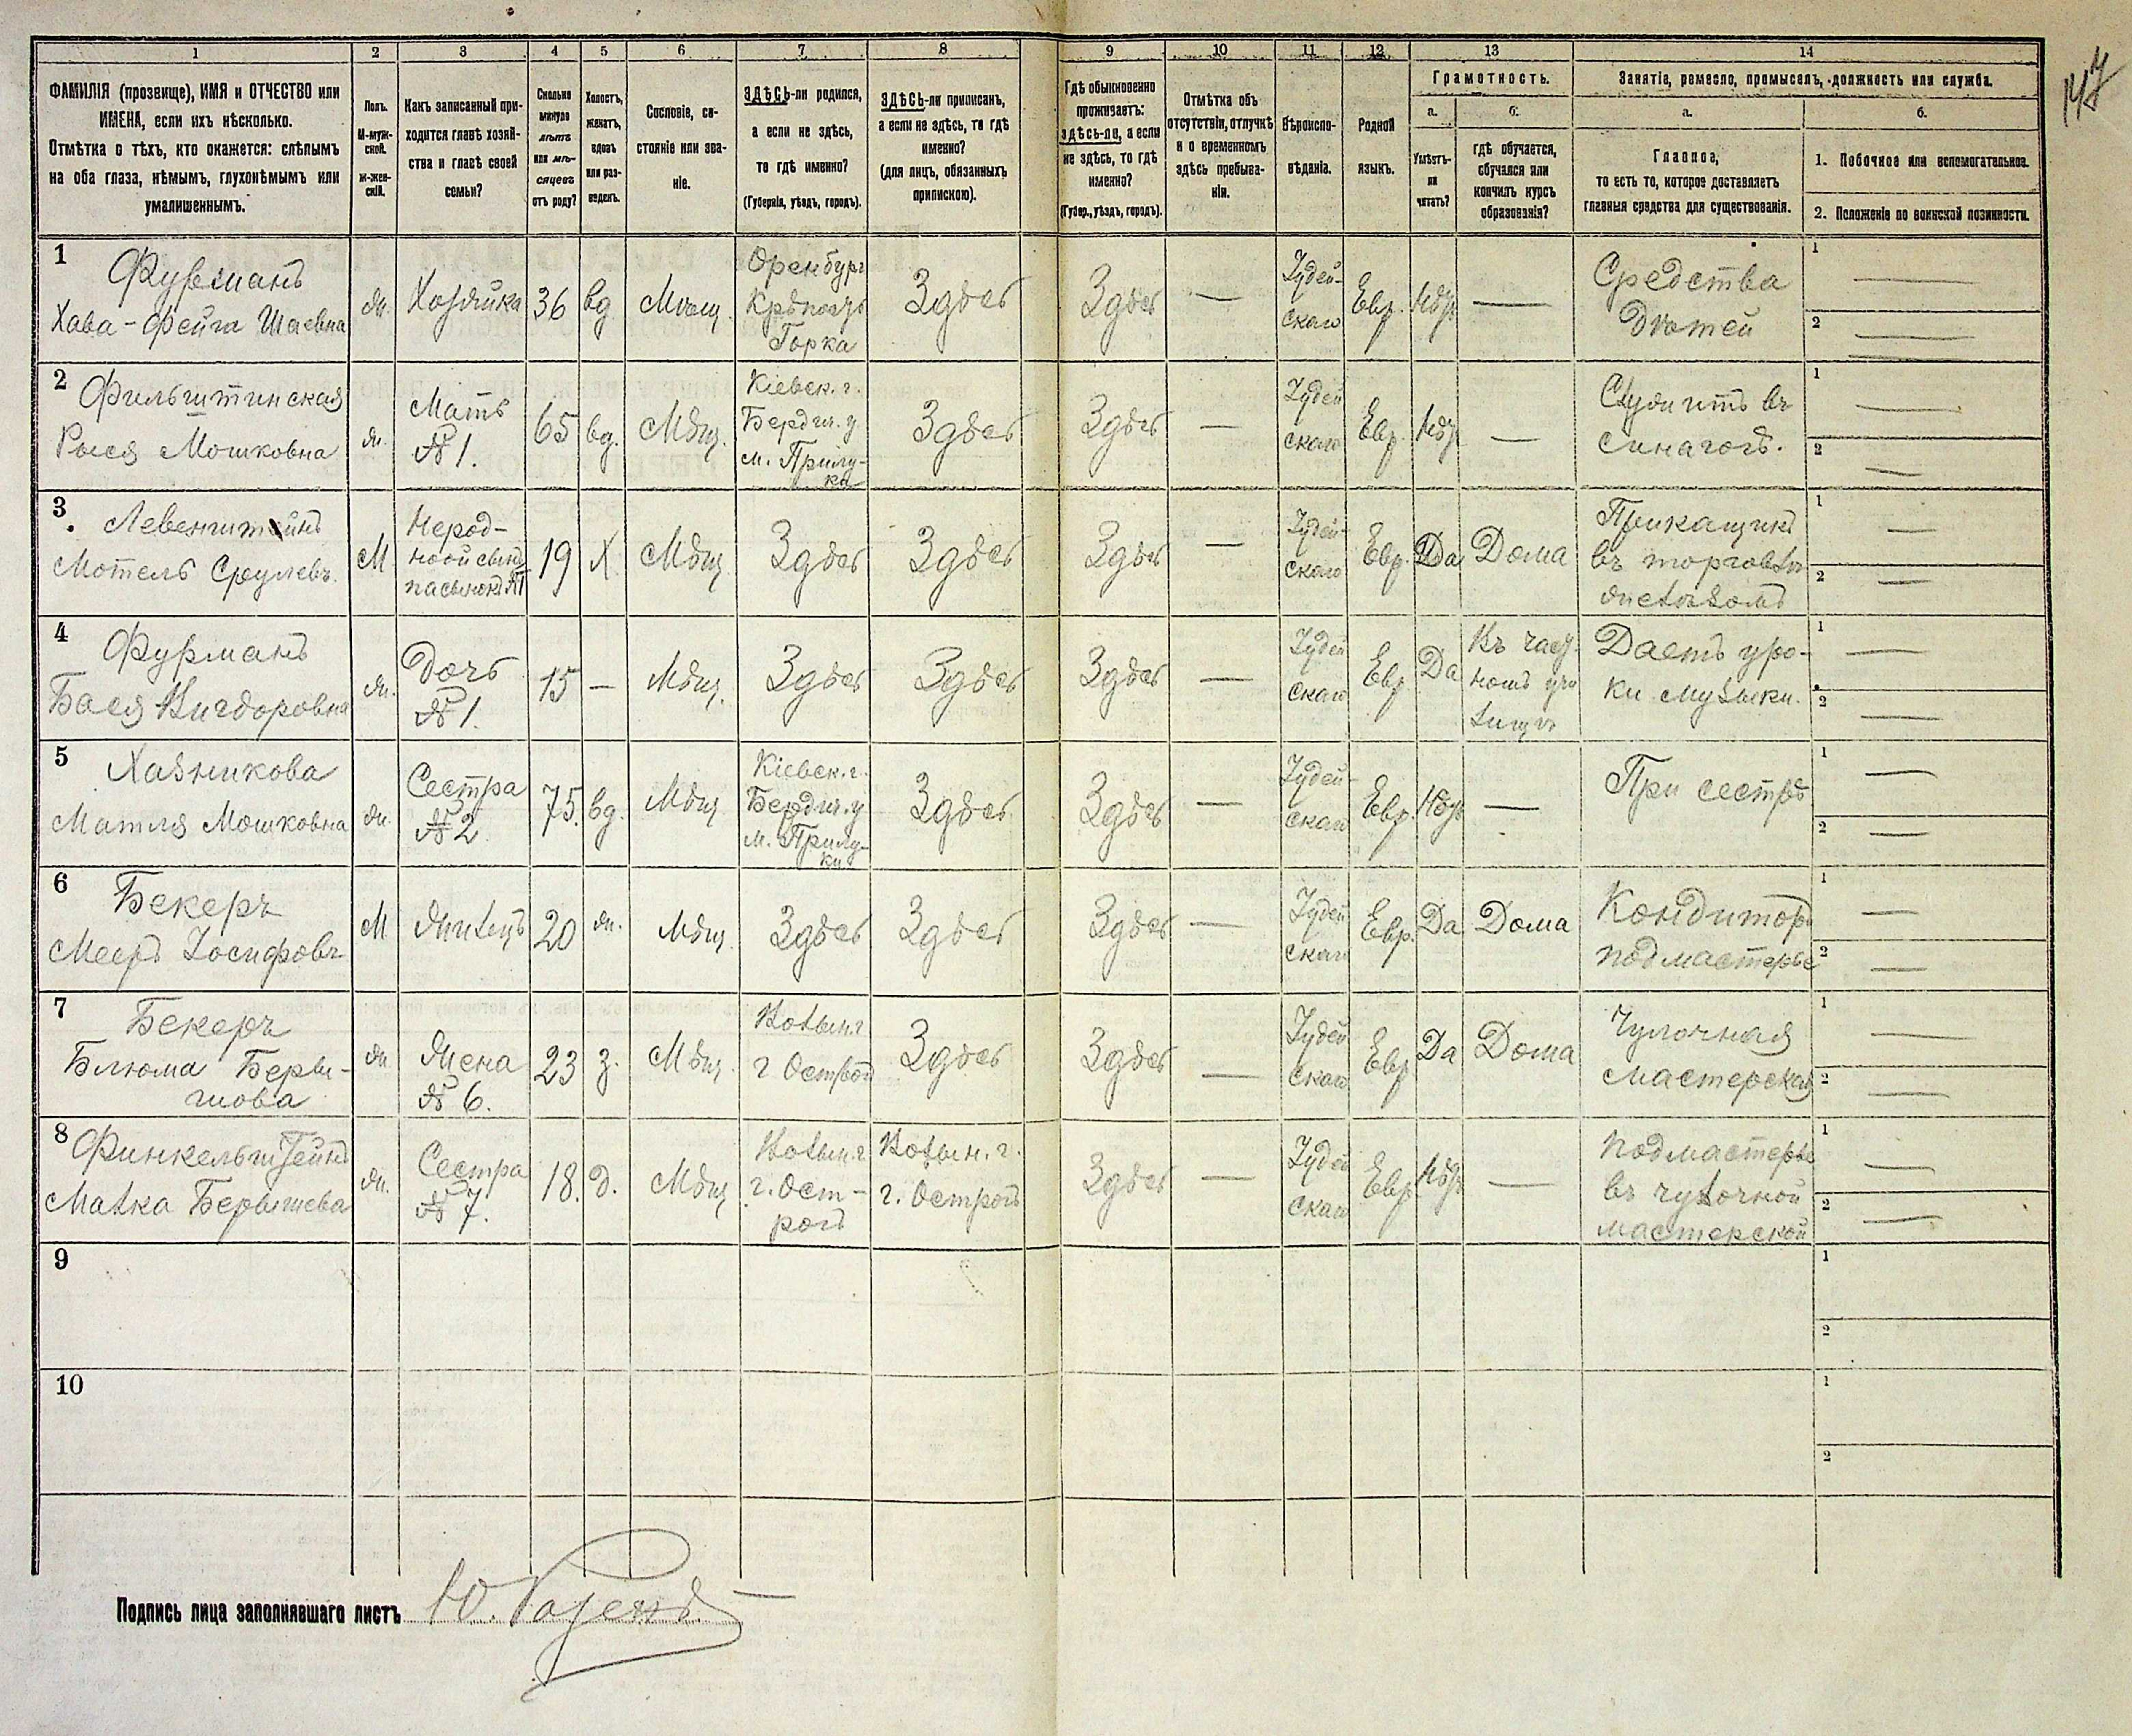 147
1 2 3 4 5 6 7 8 9 10 11 12 13 14
ФАМИЛІЯ (прозвище), ИМЯ и ОТЧЕСТВО или
ИМЕНА, если ихъ нѣсколько.
Отмѣтка о тѣхъ, кто окажется: слѣпымъ
на оба глаза, нѣмымъ, глухонѣмымъ или
умалишеннымъ.
Полъ.
М-муж-
ской.
ж-жен-
скій.
Какъ записанный при-
ходится главѣ хозяй-
ства и главѣ своей
семьи?
Сколько
минуло
лѣтъ
или мѣ-
сяцевъ
отъ роду?
Холостъ,
женатъ,
вдовъ
или раз-
веденъ.
Сословіе, со-
стояніе или зва-
ніе.
ЗДѢСЬ-ли родился,
а если не здѣсь,
то гдѣ именно?
(Губернія, уѣздъ, городъ).
ЗДѢСЬ-ли приписанъ,
а если не здѣсь, то гдѣ
именно?
(для лицъ, обязанныхъ
припискою).
Гдѣ обыкновенно
проживаетъ:
здѣсь-ли, а если
не здѣсь, то гдѣ
именно?
(Губер., уѣздъ, городъ).
Отмѣтка объ
отсутствіи, отлучкѣ
и о временномъ
здѣсь пребыва-
ніи.
Вѣроиспо-
вѣданіе.
Родной
языкъ.
Грамотность.
а.
Умѣетъ-
ли
читать?
б.
гдѣ обучается,
обучался или
кончилъ курсъ
образованія?
Занятіе, ремесло, промыселъ, должность или служба.
а.
Главное,
то есть то, которое доставляетъ
главныя средства для существованія.
б.
1. Побочное или вспомогательное.
2. Положеніе по воинской повинности.
1
Фурманъ
Хава-Фейга Шаевна
ж.
Хозяйка
36
вд
Мѣщ.
Оренбург
Горка
Здѣсь
Здѣсь
—
Іудей-
скаго
Евр.
Нѣтъ
—
Средства
Дѣтей
1 —
2 —
2
Фильштинская
Рыся Мошковна
ж.
Мать
№ 1.
65
вд.
Мѣщ.
Кіевск. г.
Бердич. у
м. Прилу-
ка
Здѣсь
Здѣсь
—
Іудей
скаго
Евр.
Нѣтъ
—
Служитъ въ
синагогѣ.
1 —
2 —
3
Левенштейнъ
Мотель Срулевъ.
М
Нерод-
ной сынъ
пасынокъ №1
19
Х.
Мѣщ.
Здѣсь
Здѣсь
Здѣсь
—
Іудей-
скаго
Евр.
Да
Дома
Прикащикъ
въ торговлѣ
желѣзомъ
1 —
2 —
4
Фурманъ
Бася Вигдоровна
ж.
Дочь
№ 1.
15
—
Мѣщ.
Здѣсь
Здѣсь
Здѣсь
—
Іудей
скаго
Евр
Да
Въ част-
номъ учи
лищѣ
Даетъ уро-
ки музыки.
1 —
2 —
5
Хазникова
Матля Мошковна
ж.
Сестра
№ 2.
75.
вд.
Мѣщ
Кіевск. г.
Бердич. у
м. Прилу-
ки
Здѣсь
Здѣсь
—
Іудей-
скаго
Евр.
Нѣтъ
—
При сестрѣ
1 —
2 —
6
Бекеръ
Мееръ Іосифовъ
М
Жилецъ
20
ж.
Мѣщ.
Здѣсь
Здѣсь
Здѣсь
—
Іудей
скаго
Евр.
Да
Дома
Кондиторъ
подмастерье
1 —
2 —
7
Бекеръ
Блюма Берви-
шова
ж
Жена
№ 6.
23
з.
Мѣщ.
Волын. г
г Острогъ
Здѣсь
Здѣсь
—
Іудей
скаго
Евр
Да
Дома
Чулочная
мастерская
1 —
2 —
8
Финкельштейнъ
Малка Бервишева
ж.
Сестра
№ 7.
18.
д.
Мѣщ
Волын. г.
г. Ост-
рогъ
Волын. г.
г. Острогъ
Здѣсь
—
Іудей
скаго
Евр
Нѣтъ
—
Подмастерье
въ чулочной
мастерской
1 —
2 —
9
1
2
10
1
2
Подпись лица заполнявшаго листъ